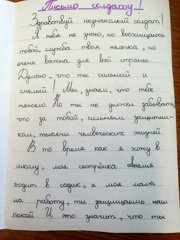 Письмо солдату!
Здравствуй незнакомый солдат!
Я тебя не знаю, но восхищаюсь
тобой, служба твоя нелегка, но
очень важна для всей страны.
Думаю, что ты сильный и
смелый! Мы знаем, что тебе
тяжело И ты не должен забывать,
что за тобой, сильным защитни-
ком, тысячи человеческих жизней
В то время как я хожу в
школу, моя сестрёнка
ходит в садик, а моя мама
на работу, ты защищаешь наш
покой И это значит, что ты